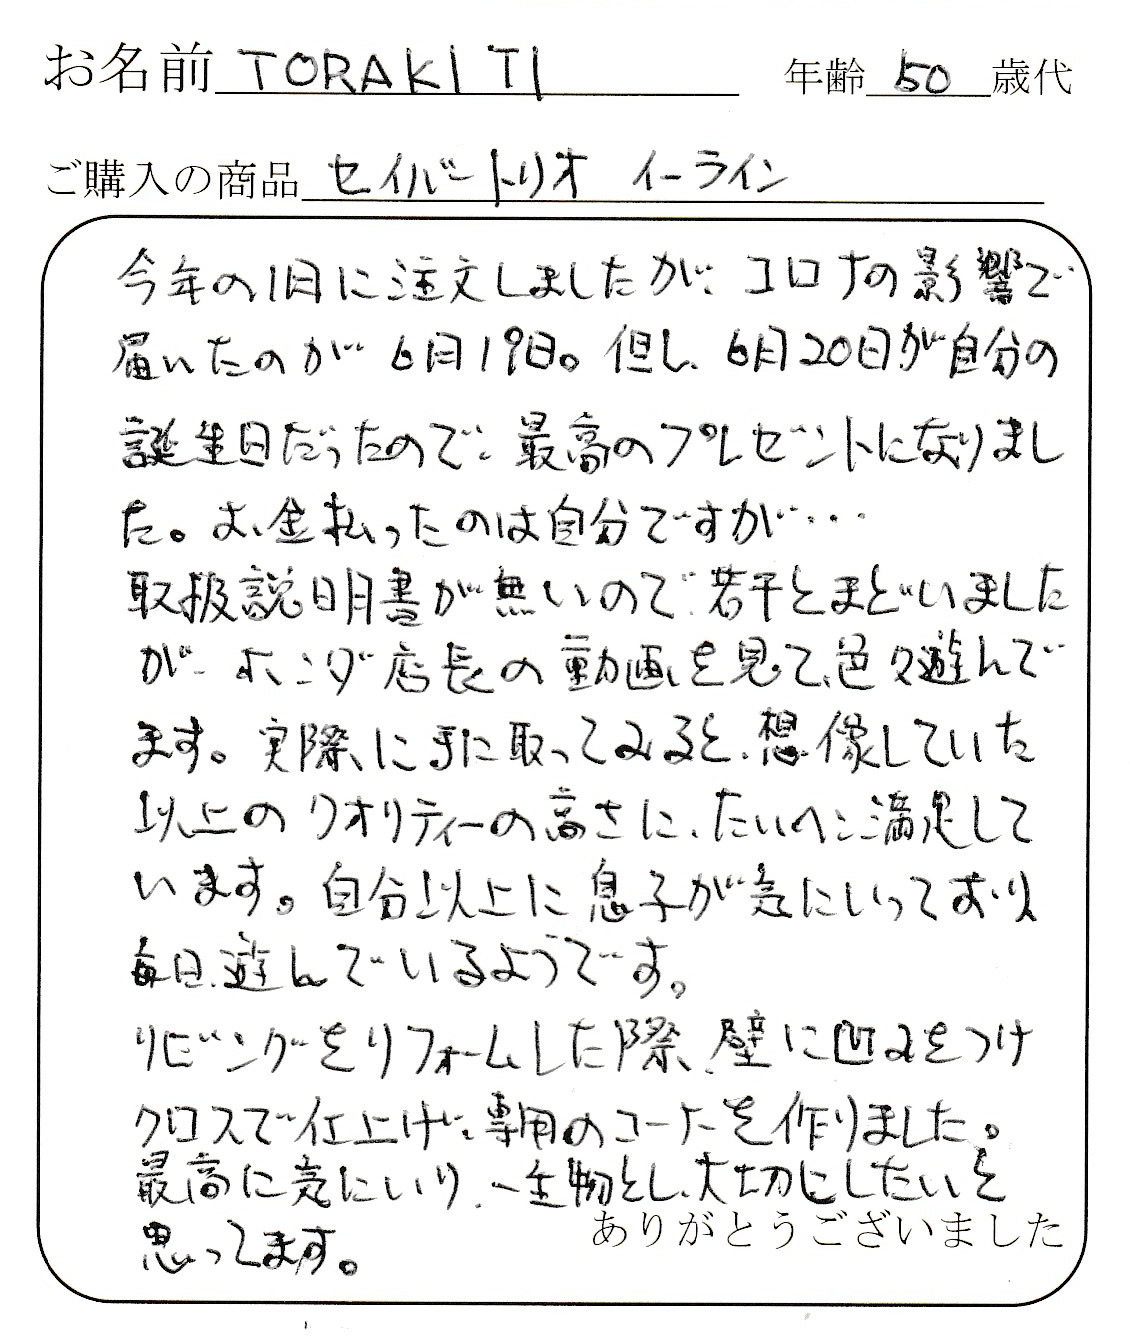 お名前 TORAKITI 年齢 50 歳代
ご購入の商品 セイバートリオ イーライン
今年の1月に注文しましたが、コロナの影響で
届いたのが6月19日。但し、6月20日が自分の
誕生日だったので、最高のプレゼントになりまし
た。お金払ったのは自分ですが・・・
取扱説明書が無いので、若干とまどいました
が、ホンダ店長の動画を見て、色々遊んで
ます。実際に手に取ってみると、想像していた
以上のクオリティーの高さに、たいへん満足して
います。自分以上に息子が気にいっており
毎日、遊んでいるようです。
リビングをリフォームした際、壁に凹みをつけ
クロスで仕上げ、専用のコーナーを作りました。
最高に気にいり、一生物とし、大切にしたいと
思ってます。
ありがとうございました